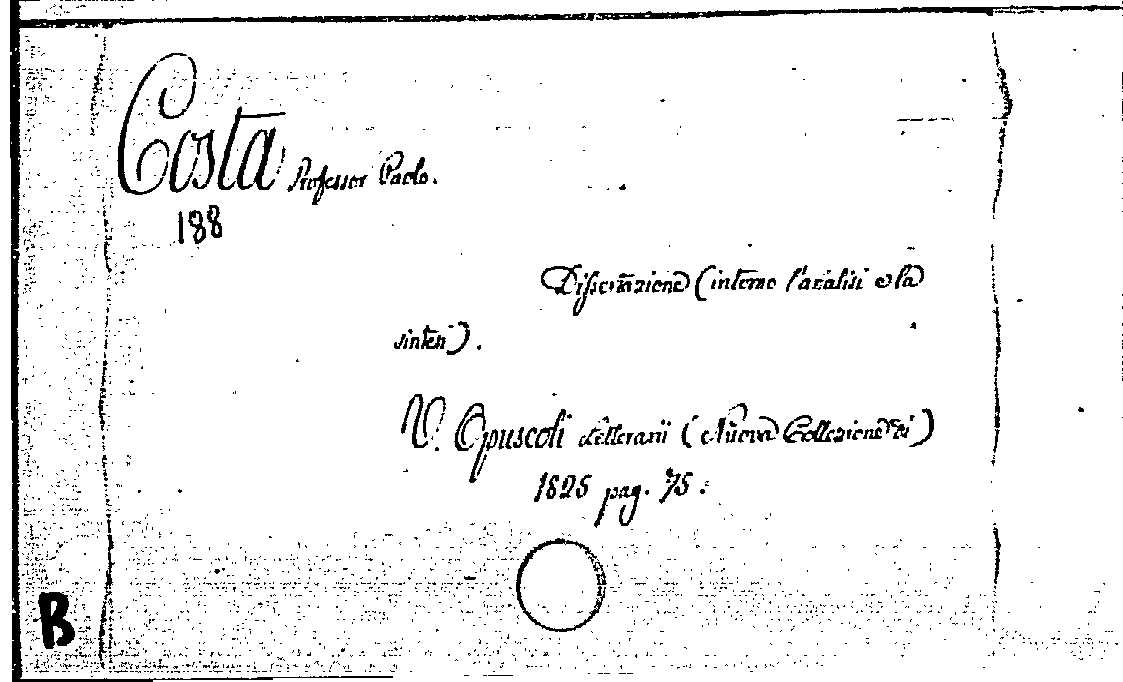 Costa Professor Paolo.
188
Dissertazione (intorno l'analisi e la
sintesi).
V. Opuscoli Letterarii (Nuova Collezione di)
1825 pag. 75.
B